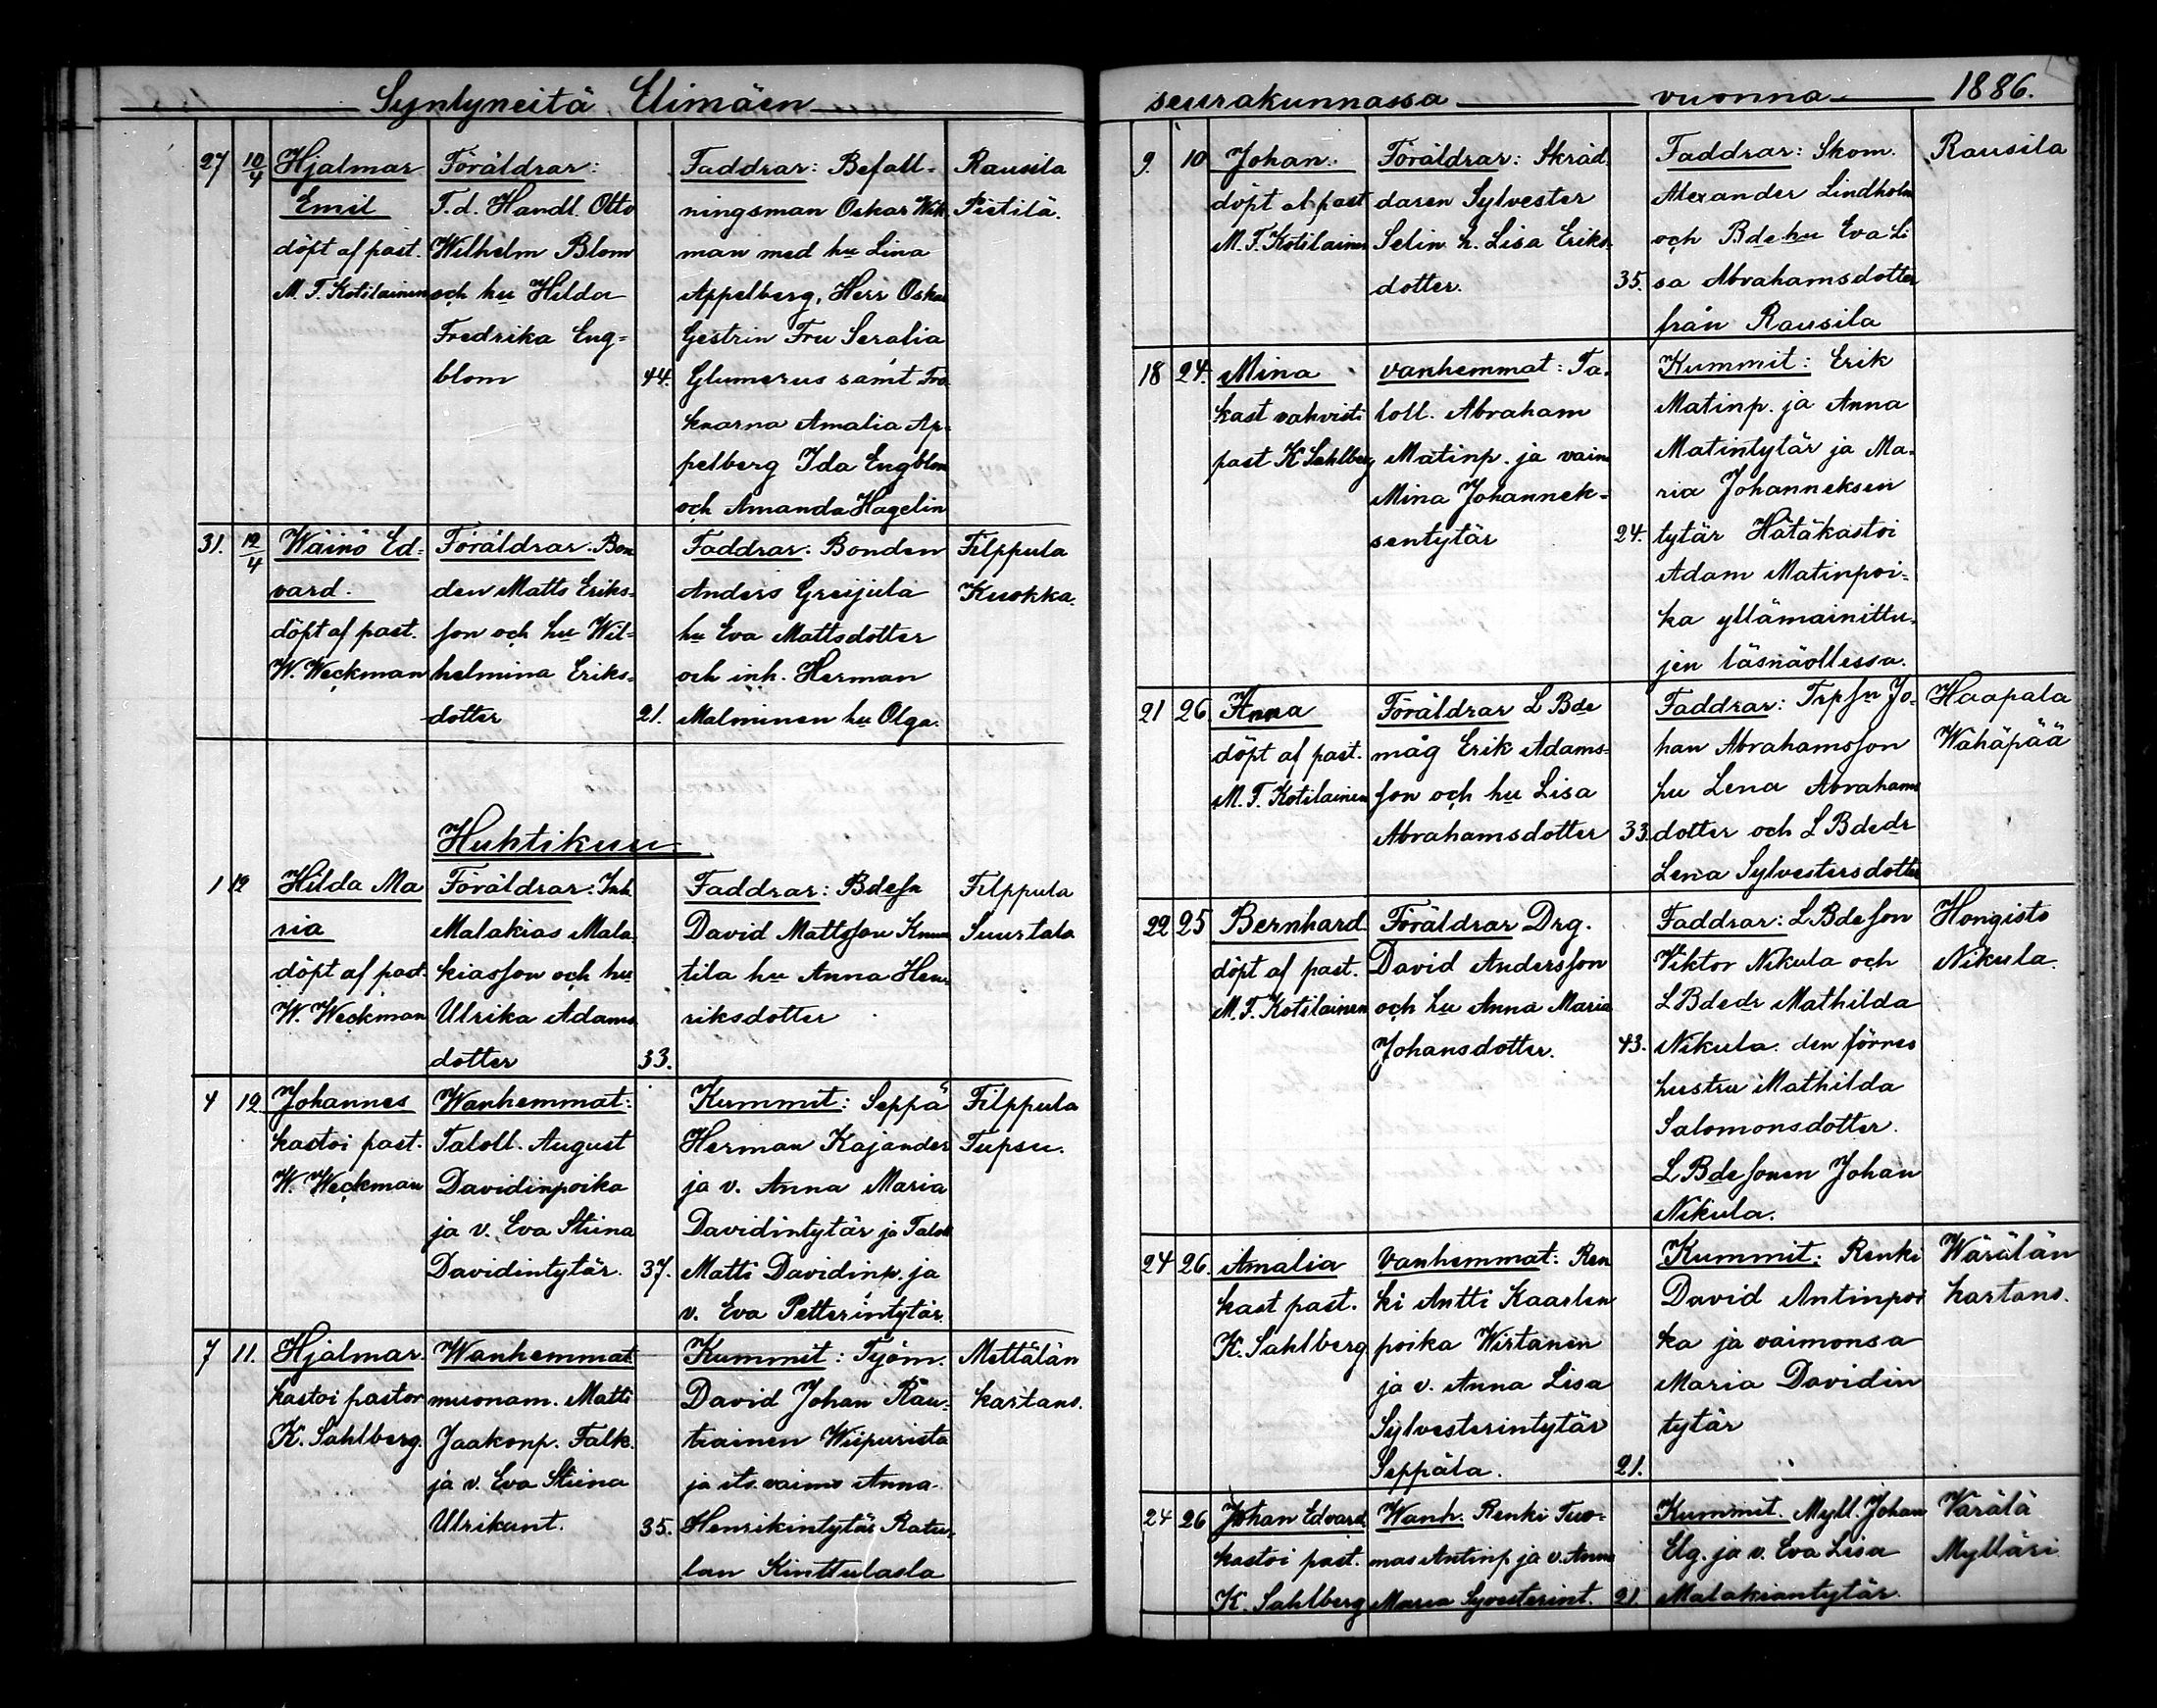 Syntyneitä Elimäen
27 10/4 Hjalmar Emil
döpt af past.
M. F. Kotilainen
Föräldrar:
T.d. Handl. Otto
Wilhelm Blom
och hu Hilda
Fredrika Eng=
blom
44.
Faddrar: Befall-
ningsman Oskar Wik
man med hu Lina
Appelberg, Herr Oskar
Gestrin Fru Seralia
Glumerus samt Frö
knarna Amalia Ap-
pelberg Ida Engblom
och Amanda Hagelin
Rausila
Pietilä.
31. 12/4 Wäinö Ed-
vard.
döpt af past.
W. Weckman
Föräldrar. Bon
den Matts Eriks-
son och hu Wil-
helmina Eriks-
dotter
21.
Faddrar: Bonden
Anders Greijula
hu Eva Mattsdotter
och inh. Herman
Malminen hu Olga.
Filppula
Kuokka.
Huhtikuu
1 12 Hilda Ma
ria
döpt af past.
W. Weckman
Föräldrar: Inh.
Malakias Mala
kiasson och hu
Ulrika Adams
dotter
33.
Faddrar: Bdesn
David Mattsson
tila hu Anna Hen-
riksdotter
Filppula
Suurtalo
4 12 Johannes
kastoi past.
W. Weckman
Wanhemmat:
Taloll. August
Davidinpoika
ja v. Eva Stiina
Davidintytär.
37.
Kummit: Seppä
Herman Kajander
ja v. Anna Maria
Davidintytär ja Taloll
Matti Davidinp. ja
v. Eva Petterintytär.
Filppula
Tupsu.
7 11. Hjalmar.
kastoi pastor
K. Sahlberg.
Wanhemmat
muonam. Matti
Jaakonp. Falk.
ja v. Eva Stiina
Ulrikunt.
35.
Kummit: Työm.
David Johan Rau-
tiainen Wiipurista
ja its. vaimo Anna
Henrikintytär Ratu-
lan Kinttulasta
Mettälän
kartano.
seurakunnassa vuonna 1886.
9. 10 Johan.
döpt af past
M. F. Kotilainen
Föräldrar: Skräd
daren Sylvester
Selin h. Lisa Eriks-
dotter.
35.
Faddrar: Skom.
Alexander Lindholm
och Bdehu Eva Li
sa Abrahamsdotter
från Rausila
Rausila
18 24. Mina
kast vahvisti
past K Sahlberg
vanhemmat: Ta-
loll. Abraham
Matinp. ja vaim
Mina Johannek-
sentytär
24.
Kummit: Erik
Matinp. ja Anna
Matintytär ja Ma-
ria Johanneksen
tytär Hätäkastoi
Adam Matinpoi-
ka yllämainittu-
jen läsnäollessa.
21 26 Anna
döpt af past.
M. F. Kotilainen
Föräldrar L Bde
måg Erik Adams-
son och hu Lisa
Abrahamsdotter
33.
Faddrar: Trpsn Jo-
han Abrahamsson
hu Lena Abrahams
dotter och L Bdedr
Lena Sylvestersdotter
Haapala
Wähäpää
22 25 Bernhard
döpt af past.
M. F. Kotilainen
Föräldrar Drg.
David Andersson
och hu Anna Maria
Johansdotter.
43.
Faddrar: L Bdeson
Viktor Nikula och
L Bdedr Mathilda
Nikula. den förres
hustru Mathilda
Salomonsdotter.
L Bdesonen Johan
Nikula.
Hongisto
Nikula.
24 26. Amalia
kast past.
K. Sahlberg
Vanhemmat: Ren
ki Antti Kaarlen
poika Wirtanen
ja v. Anna Lisa
Sylvesterintytär
Seppäla.
21.
Kummit: Renki
David Antinpoi
ka ja vaimonsa
Maria Davidin
tytär
Wärälän
kartano.
24 26 Johan Edvard
kastoi past.
K. Sahlberg
Wanh. Renki Tuo-
mas Antinp ja v. Anna
Maria Syvesterint.
21.
Kummit. Myll. Johan
Elg. ja v. Eva Lisa
Malakiantytär.
Värälä
Mylläri